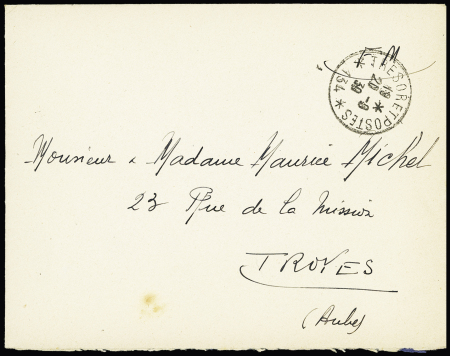 F.M.
TRESOR ET POSTES * 134 *
18
20-9
39
Monsieur & Madame Maurice Michel
23 Rue de la Mission
TROYES
(Aube)